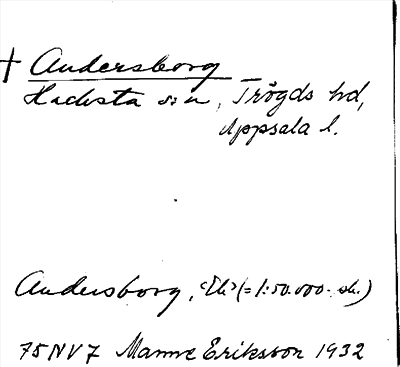 † Andersborg
Hacksta sn, Trögds hd,
Uppsala l.
Andersborg, "Ek" (= 1:50.000-ek.)
75NV7 Manne Eriksson 1932